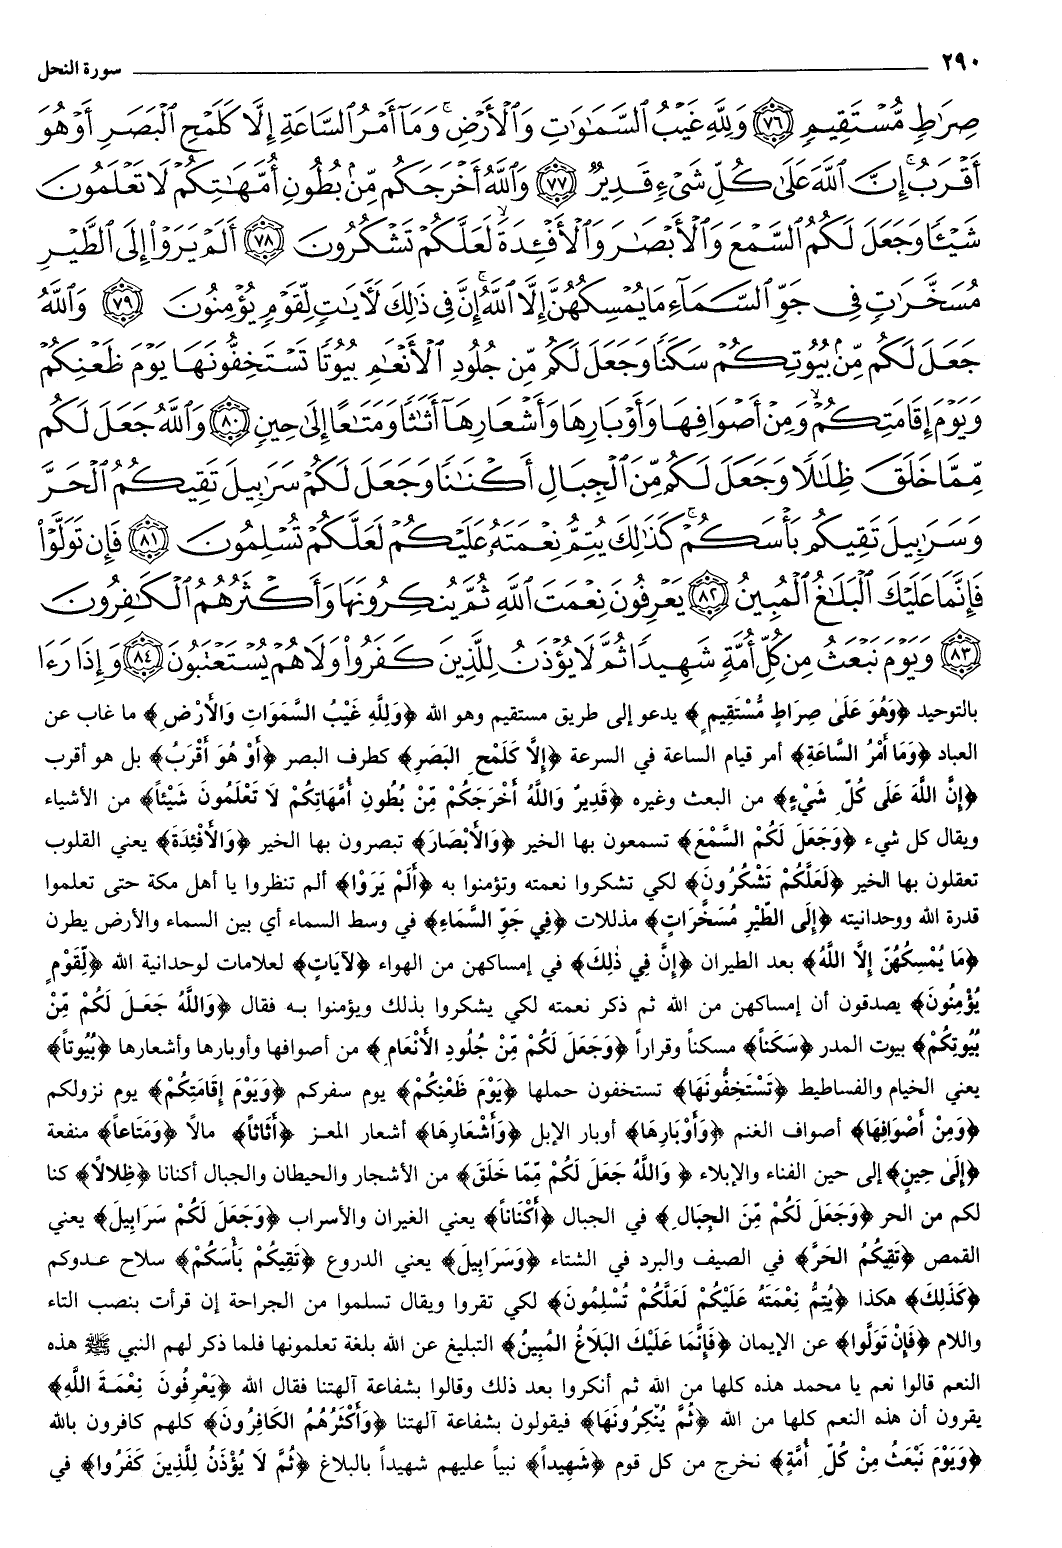 ٢٩٠ سورة النحل
صِرَٰطٍ مُّسْتَقِيمٍ ﴿٧٦﴾ وَلِلَّهِ غَيْبُ ٱلسَّمَٰوَٰتِ وَٱلْأَرْضِ ۚ وَمَآ أَمْرُ ٱلسَّاعَةِ إِلَّا كَلَمْحِ ٱلْبَصَرِ أَوْ هُوَ
أَقْرَبُ ۚ إِنَّ ٱللَّهَ عَلَىٰ كُلِّ شَىْءٍ قَدِيرٌ ﴿٧٧﴾ وَٱللَّهُ أَخْرَجَكُم مِّنۢ بُطُونِ أُمَّهَٰتِكُمْ لَا تَعْلَمُونَ
شَيْـًٔا وَجَعَلَ لَكُمُ ٱلسَّمْعَ وَٱلْأَبْصَٰرَ وَٱلْأَفْـِٔدَةَ ۙ لَعَلَّكُمْ تَشْكُرُونَ ﴿٧٨﴾ أَلَمْ يَرَوْا۟ إِلَى ٱلطَّيْرِ
مُسَخَّرَٰتٍ فِى جَوِّ ٱلسَّمَآءِ مَا يُمْسِكُهُنَّ إِلَّا ٱللَّهُ ۗ إِنَّ فِى ذَٰلِكَ لَءَايَٰتٍ لِّقَوْمٍ يُؤْمِنُونَ ﴿٧٩﴾ وَٱللَّهُ
جَعَلَ لَكُم مِّنۢ بُيُوتِكُمْ سَكَنًا وَجَعَلَ لَكُم مِّن جُلُودِ ٱلْأَنْعَٰمِ بُيُوتًا تَسْتَخِفُّونَهَا يَوْمَ ظَعْنِكُمْ
وَيَوْمَ إِقَامَتِكُمْ ۙ وَمِنْ أَصْوَافِهَا وَأَوْبَارِهَا وَأَشْعَارِهَآ أَثَٰثًا وَمَتَٰعًا إِلَىٰ حِينٍ ﴿٨٠﴾ وَٱللَّهُ جَعَلَ لَكُم
مِّمَّا خَلَقَ ظِلَٰلًا وَجَعَلَ لَكُم مِّنَ ٱلْجِبَالِ أَكْنَٰنًا وَجَعَلَ لَكُمْ سَرَٰبِيلَ تَقِيكُمُ ٱلْحَرَّ
وَسَرَٰبِيلَ تَقِيكُم بَأْسَكُمْ ۚ كَذَٰلِكَ يُتِمُّ نِعْمَتَهُۥ عَلَيْكُمْ لَعَلَّكُمْ تُسْلِمُونَ ﴿٨١﴾ فَإِن تَوَلَّوْا۟
فَإِنَّمَا عَلَيْكَ ٱلْبَلَٰغُ ٱلْمُبِينُ ﴿٨٢﴾ يَعْرِفُونَ نِعْمَتَ ٱللَّهِ ثُمَّ يُنكِرُونَهَا وَأَكْثَرُهُمُ ٱلْكَٰفِرُونَ
﴿٨٣﴾ وَيَوْمَ نَبْعَثُ مِن كُلِّ أُمَّةٍ شَهِيدًا ثُمَّ لَا يُؤْذَنُ لِلَّذِينَ كَفَرُوا۟ وَلَا هُمْ يُسْتَعْتَبُونَ ﴿٨٤﴾ وَإِذَا رَءَا
بالتوحيد ﴿وَهُوَ عَلَىٰ صِرَاطٍ مُّسْتَقِيمٍ﴾ يدعو إلى طريق مستقيم وهو الله ﴿وَلِلَّهِ غَيْبُ السَّمَوَاتِ وَالأَرْضِ﴾ ما غاب عن
العباد ﴿وَمَا أَمْرُ السَّاعَةِ﴾ أمر قيام الساعة في السرعة ﴿إِلَّا كَلَمْحِ البَصَرِ﴾ كطرف البصر ﴿أَوْ هُوَ أَقْرَبُ﴾ بل هو أقرب
﴿إِنَّ اللَّهَ عَلَى كُلِّ شَيْءٍ﴾ من البعث وغيره ﴿قَدِيرٌ وَاللَّهُ أَخْرَجَكُمْ مِّنْ بُطُونِ أُمَّهَاتِكُمْ لَا تَعْلَمُونَ شَيْئاً﴾ من الأشياء
ويقال كل شيء ﴿وَجَعَلَ لَكُمُ السَّمْعَ﴾ تسمعون بها الخير ﴿وَالأَبْصَارَ﴾ تبصرون بها الخير ﴿وَالأَفْئِدَةَ﴾ يعني القلوب
تعقلون بها الخير ﴿لَعَلَّكُمْ تَشْكُرُونَ﴾ لكي تشكروا نعمته وتؤمنوا به ﴿أَلَمْ يَرَوْا﴾ ألم تنظروا يا أهل مكة حتى تعلموا
قدرة الله ووحدانيته ﴿إِلَى الطَّيْرِ مُسَخَّرَاتٍ﴾ مذللات ﴿فِي جَوِّ السَّمَاءِ﴾ في وسط السماء أي بين السماء والأرض يطرن
﴿مَا يُمْسِكُهُنَّ إِلَّا اللَّهُ﴾ بعد الطيران ﴿إِنَّ فِي ذَٰلِكَ﴾ في إمساكهن من الهواء ﴿لآيَاتٍ﴾ لعلامات لوحدانية الله ﴿لِّقَوْمٍ
يُؤْمِنُونَ﴾ يصدقون أن إمساكهن من الله ثم ذكر نعمته لكي يشكروا بذلك ويؤمنوا به فقال ﴿وَاللَّهُ جَعَلَ لَكُمْ مِّنْ
بُيُوتِكُمْ﴾ بيوت المدر ﴿سَكَناً﴾ مسكناً وقراراً ﴿وَجَعَلَ لَكُمْ مِّنْ جُلُودِ الأَنْعَامِ﴾ من أصوافها وأوبارها وأشعارها ﴿بُيُوتاً﴾
يعني الخيام والفساطيط ﴿تَسْتَخِفُّونَهَا﴾ تستخفون حملها ﴿يَوْمَ ظَعْنِكُمْ﴾ يوم سفركم ﴿وَيَوْمَ إِقَامَتِكُمْ﴾ يوم نزولكم
﴿وَمِنْ أَصْوَافِهَا﴾ أصواف الغنم ﴿وَأَوْبَارِهَا﴾ أوبار الإبل ﴿وَأَشْعَارِهَا﴾ أشعار المعز ﴿أَثَاثاً﴾ مالاً ﴿وَمَتَاعاً﴾ منفعة
﴿إِلَىٰ حِينٍ﴾ إلى حين الفناء والإبلاء ﴿وَاللَّهُ جَعَلَ لَكُمْ مِّمَّا خَلَقَ﴾ من الأشجار والحيطان والجبال أكنانا ﴿ظِلالاً﴾ كنا
لكم من الحر ﴿وَجَعَلَ لَكُمْ مِّنَ الجِبَالِ﴾ في الجبال ﴿أَكْنَاناً﴾ يعني الغيران والأسراب ﴿وَجَعَلَ لَكُمْ سَرَابِيلَ﴾ يعني
القمص ﴿تَقِيكُمُ الحَرَّ﴾ في الصيف والبرد في الشتاء ﴿وَسَرَابِيلَ﴾ يعني الدروع ﴿تَقِيكُمْ بَأْسَكُمْ﴾ سلاح عدوكم
﴿كَذَلِكَ﴾ هكذا ﴿يُتِمُّ نِعْمَتَهُ عَلَيْكُمْ لَعَلَّكُمْ تُسْلِمُونَ﴾ لكي تقروا ويقال تسلموا من الجراحة إن قرأت بنصب التاء
واللام ﴿فَإِنْ تَوَلَّوا﴾ عن الإيمان ﴿فَإِنَّمَا عَلَيْكَ البَلَاغُ المُبِينُ﴾ التبليغ عن الله بلغة تعلمونها فلما ذكر لهم النبي ﷺ هذه
النعم قالوا نعم يا محمد هذه كلها من الله ثم أنكروا بعد ذلك وقالوا بشفاعة آلهتنا فقال الله ﴿يَعْرِفُونَ نِعْمَةَ اللَّهِ﴾
يقرون أن هذه النعم كلها من الله ﴿ثُمَّ يُنْكِرُونَهَا﴾ فيقولون بشفاعة آلهتنا ﴿وَأَكْثَرُهُمُ الكَافِرُونَ﴾ كلهم كافرون بالله
﴿وَيَوْمَ نَبْعَثُ مِنْ كُلِّ أُمَّةٍ﴾ نخرج من كل قوم ﴿شَهِيداً﴾ نبياً عليهم شهيداً بالبلاغ ﴿ثُمَّ لَا يُؤْذَنُ لِلَّذِينَ كَفَرُوا﴾ في